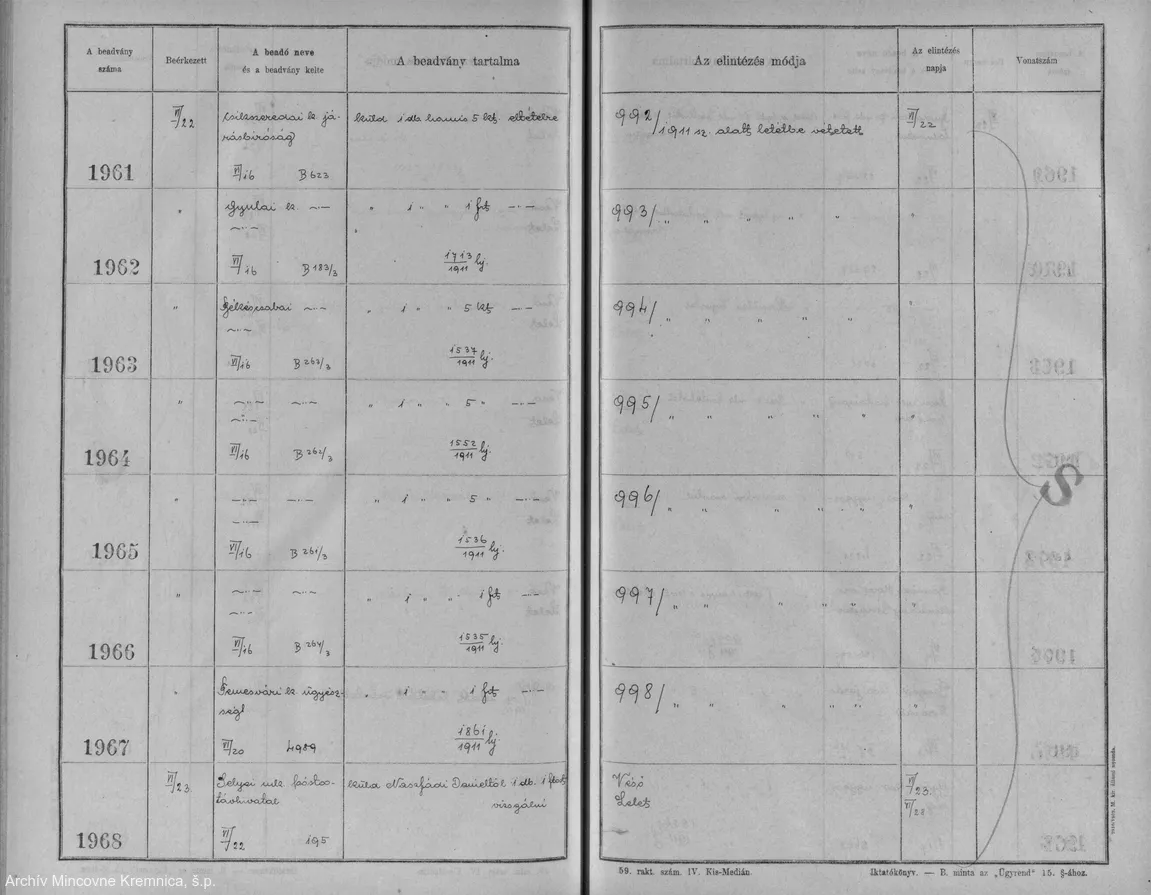 A beadvány
száma
Beérkezett
A beadó neve
és a beadvány kelte
A beadvány tartalma
Az elintézés módja
Az elintézés
napja
Vonatszám
1961
VI/22
csikszeredai k. já-
rásbíróság
VI/16 B 623
küld 1 db. hamis 5 kt. eltételre
992/
1911 sz. alatt letétbe vétetett
VI/22
1962
"
gyulai k. —·—
—·—
VI/16 B 183/3
" 1 " " 1 ft —·—
1713/1911 lj.
993/ " " " " "
"
1963
"
Békéscsabai —·—
—·—
VI/16 B 263/3
" 1 " " 5 kt —·—
1537/1911 lj.
994/ " " " " "
"
1964
"
—·— —·—
—·—
VI/16 B 262/3
" 1 " " 5 " —·—
1552/1911 lj.
995/ " " " " "
"
1965
"
—·— —·—
—·—
VI/16 B 261/3
" 1 " " 5 " —·—
1536/1911 lj.
996/ " " " " "
"
S
1966
"
—·— —·—
—·—
VI/16 B 264/3
" 1 " " 1 ft —·—
1535/1911 lj.
997/ " " " " "
"
1967
"
Temesvári k. ügyész-
ség
VI/20 4989
" 1 " " 1 ft —·—
1861/1911 lj.
998/ " " " " "
"
1968
VI/23.
pósta-
távhivatal
VI/22 195
küld Danieltól 1 db. 1 ftot
vizsgálni
Véső
Lelet
VI/23.
VI/28
59. rakt. szám. IV. Kis-Medián.
Iktatókönyv. — B. minta az „Ügyrend" 15. §-ához.
Archív Mincovne Kremnica, š.p.